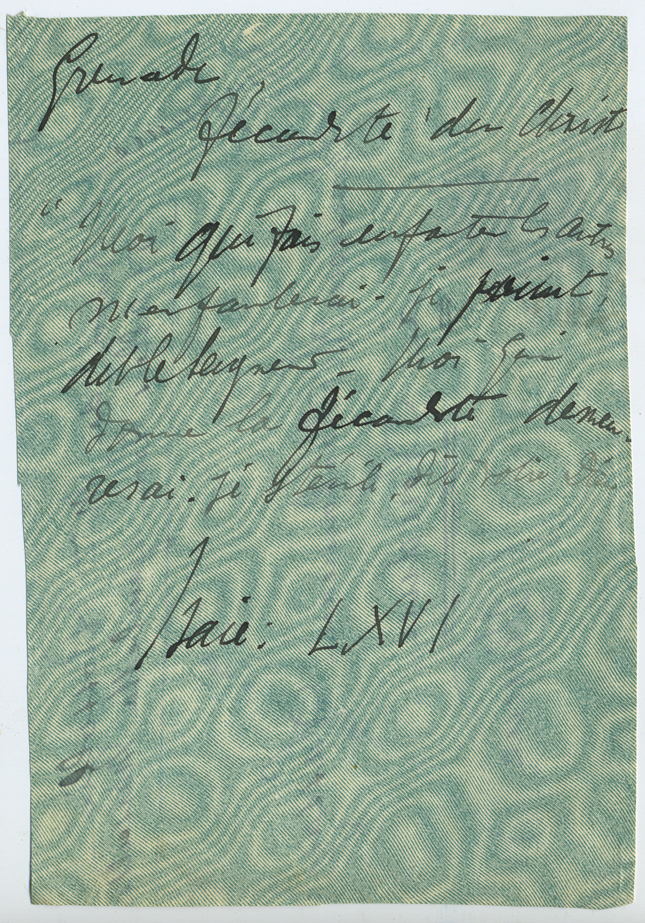 Grenade
fécondité du Christ
" Moi qui fais enfanter les autres
n'enfanterai-je point,
dit le Seigneur - Moi qui
donne la fécondité demeu-
rerai-je stérile, dit Dieu
Isaïe: LXVI